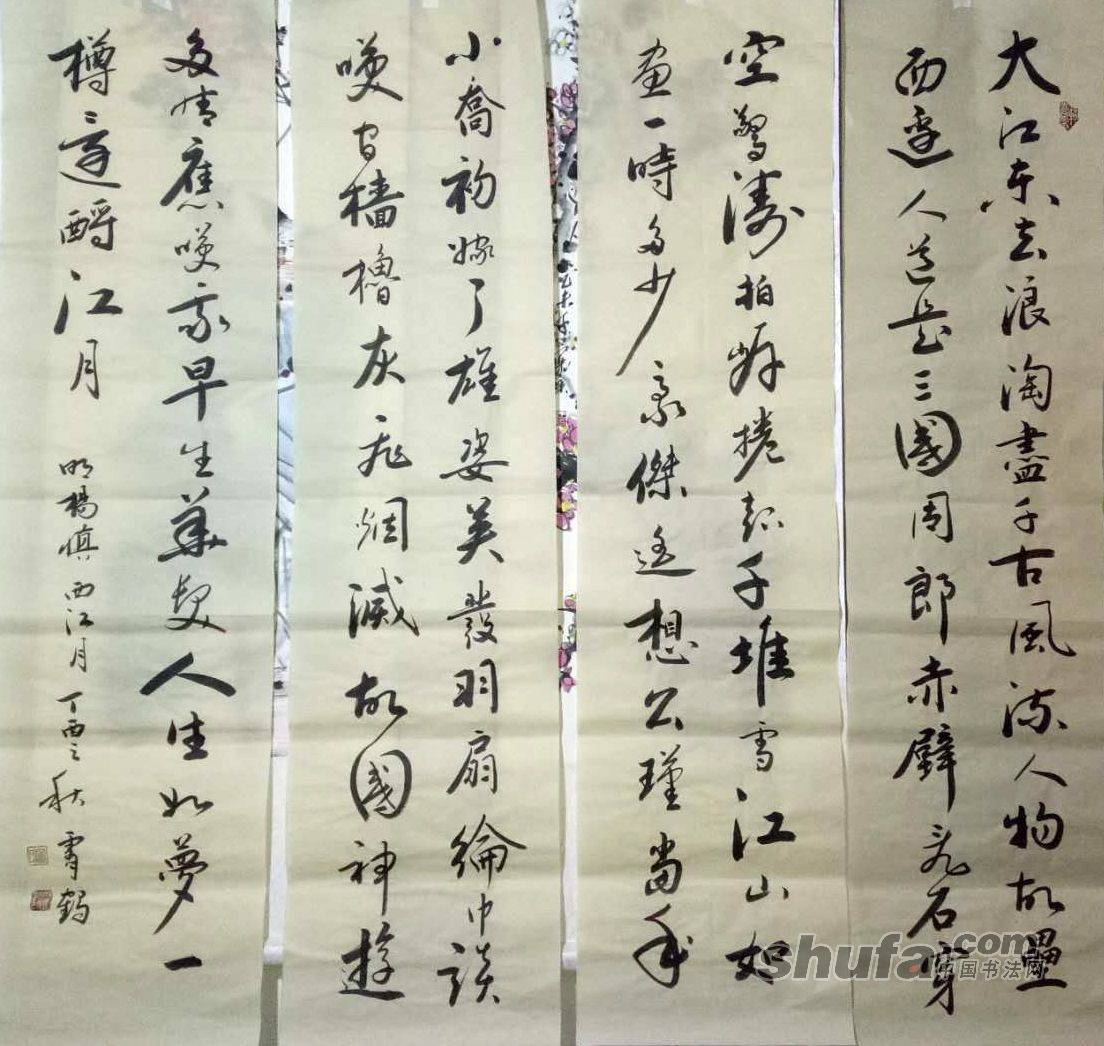 大江東去浪淘盡千古風流人物故壘
西邊人道是三國周郎赤壁亂石穿
空驚濤拍岸捲起千堆雪江山如
畫一時多少豪傑遙想公瑾當年
小喬初嫁了雄姿英發羽扇綸巾談
笑間檣櫓灰飛烟滅故國神遊
多情應笑我早生華髮人生如夢一
樽還酹江月 明楊慎西江月 丁酉之秋
shufa.com
中国书法网